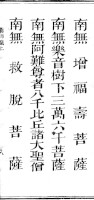 南無增福壽菩薩
南無樂音樹下三萬六千菩薩
南無阿難尊者八千比丘諸大聖僧
南無救脫菩薩